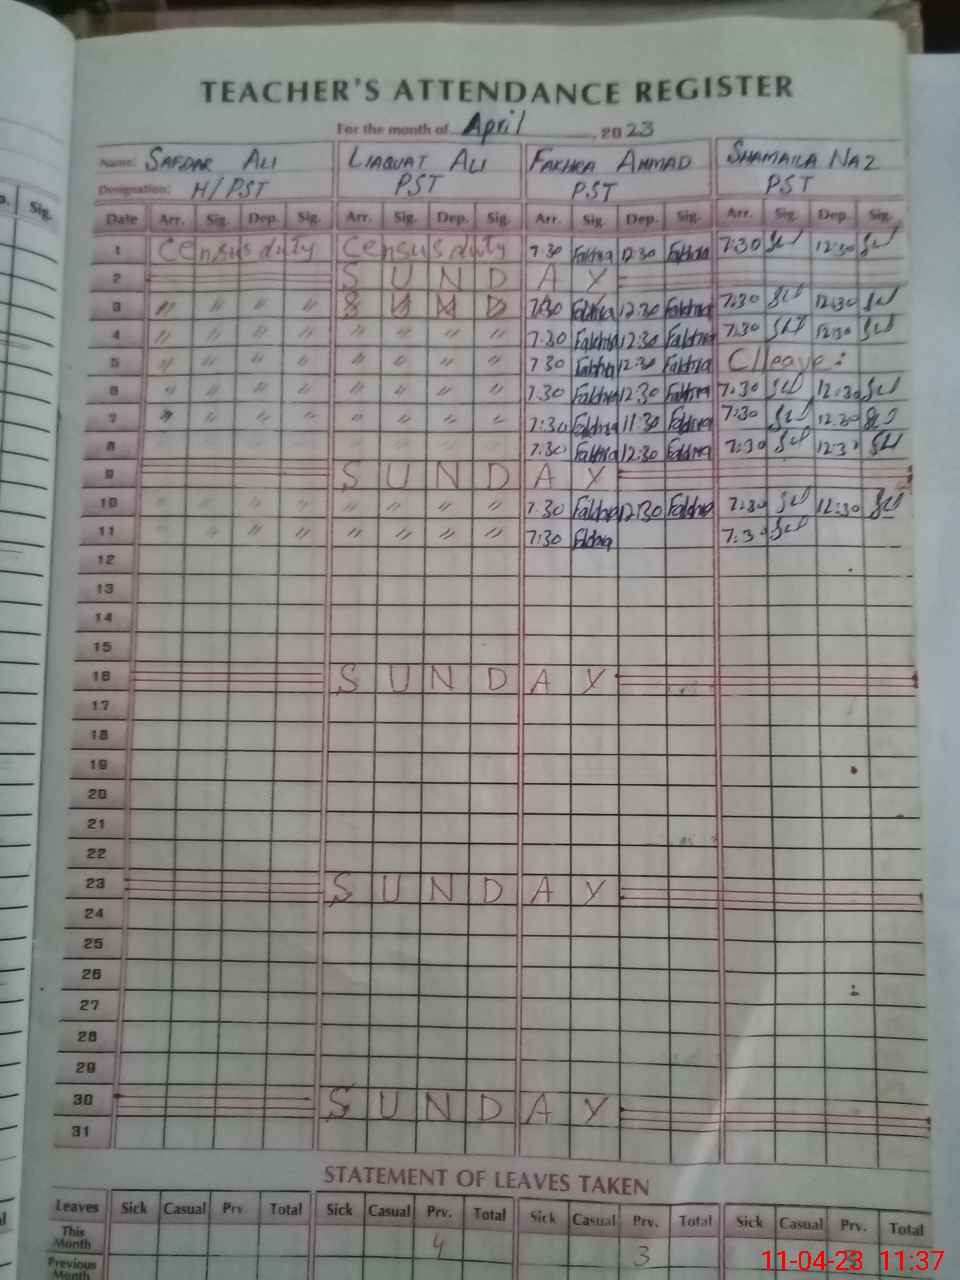 TEACHER'S ATTENDANCE REGISTER
For the month of April, 2023
Name: SAFDAR ALI LIAQUAT ALI FAKHRA AHMAD SHAMAILA NAZ
Designation: H/PST PST PST PST
Date Arr. Sig. Dep. Sig. Arr. Sig. Dep. Sig. Arr. Sig. Dep. Sig. Arr. Sig. Dep. Sig.
1 Census duty Census duty 7.30 Fakhra 12.30 Fakhra 7:30 12:30
2 SUNDAY
3 〃 〃 〃 〃 7.30 Fakhra 12.30 Fakhra 7:30 12:30
4 〃 〃 〃 〃 〃 〃 〃 〃 7.30 Fakhra 12.30 Fakhra 7:30 12:30
5 〃 〃 〃 〃 〃 〃 〃 〃 7 30 Fakhra 12.30 Fakhra C leave:
6 〃 〃 〃 〃 〃 〃 〃 〃 7.30 Fakhra 12.30 Fakhra 7:30 12:30
7 〃 〃 〃 〃 〃 〃 〃 〃 7:30 Fakhra 11.30 Fakhra 7:30 12.30
8 7.30 Fakhra 12.30 Fakhra 7:30 12:30
9 SUNDAY
10 〃 〃 〃 〃 〃 〃 〃 7.30 Fakhra 12:30 Fakhra 7:30 12:30
11 〃 〃 〃 〃 〃 〃 〃 7:30 Fakhra 7:30
12
13
14
15
16 SUNDAY
17
18
19
20
21
22
23 SUNDAY
24
25
26
27
28
29
30 SUNDAY
31
STATEMENT OF LEAVES TAKEN
Leaves Sick Casual Prv Total Sick Casual Prv. Total Sick Casual Prv. Total Sick Casual Prv. Total
This Month 4 3
Previous Month
11-04-23 11:37
Sig.